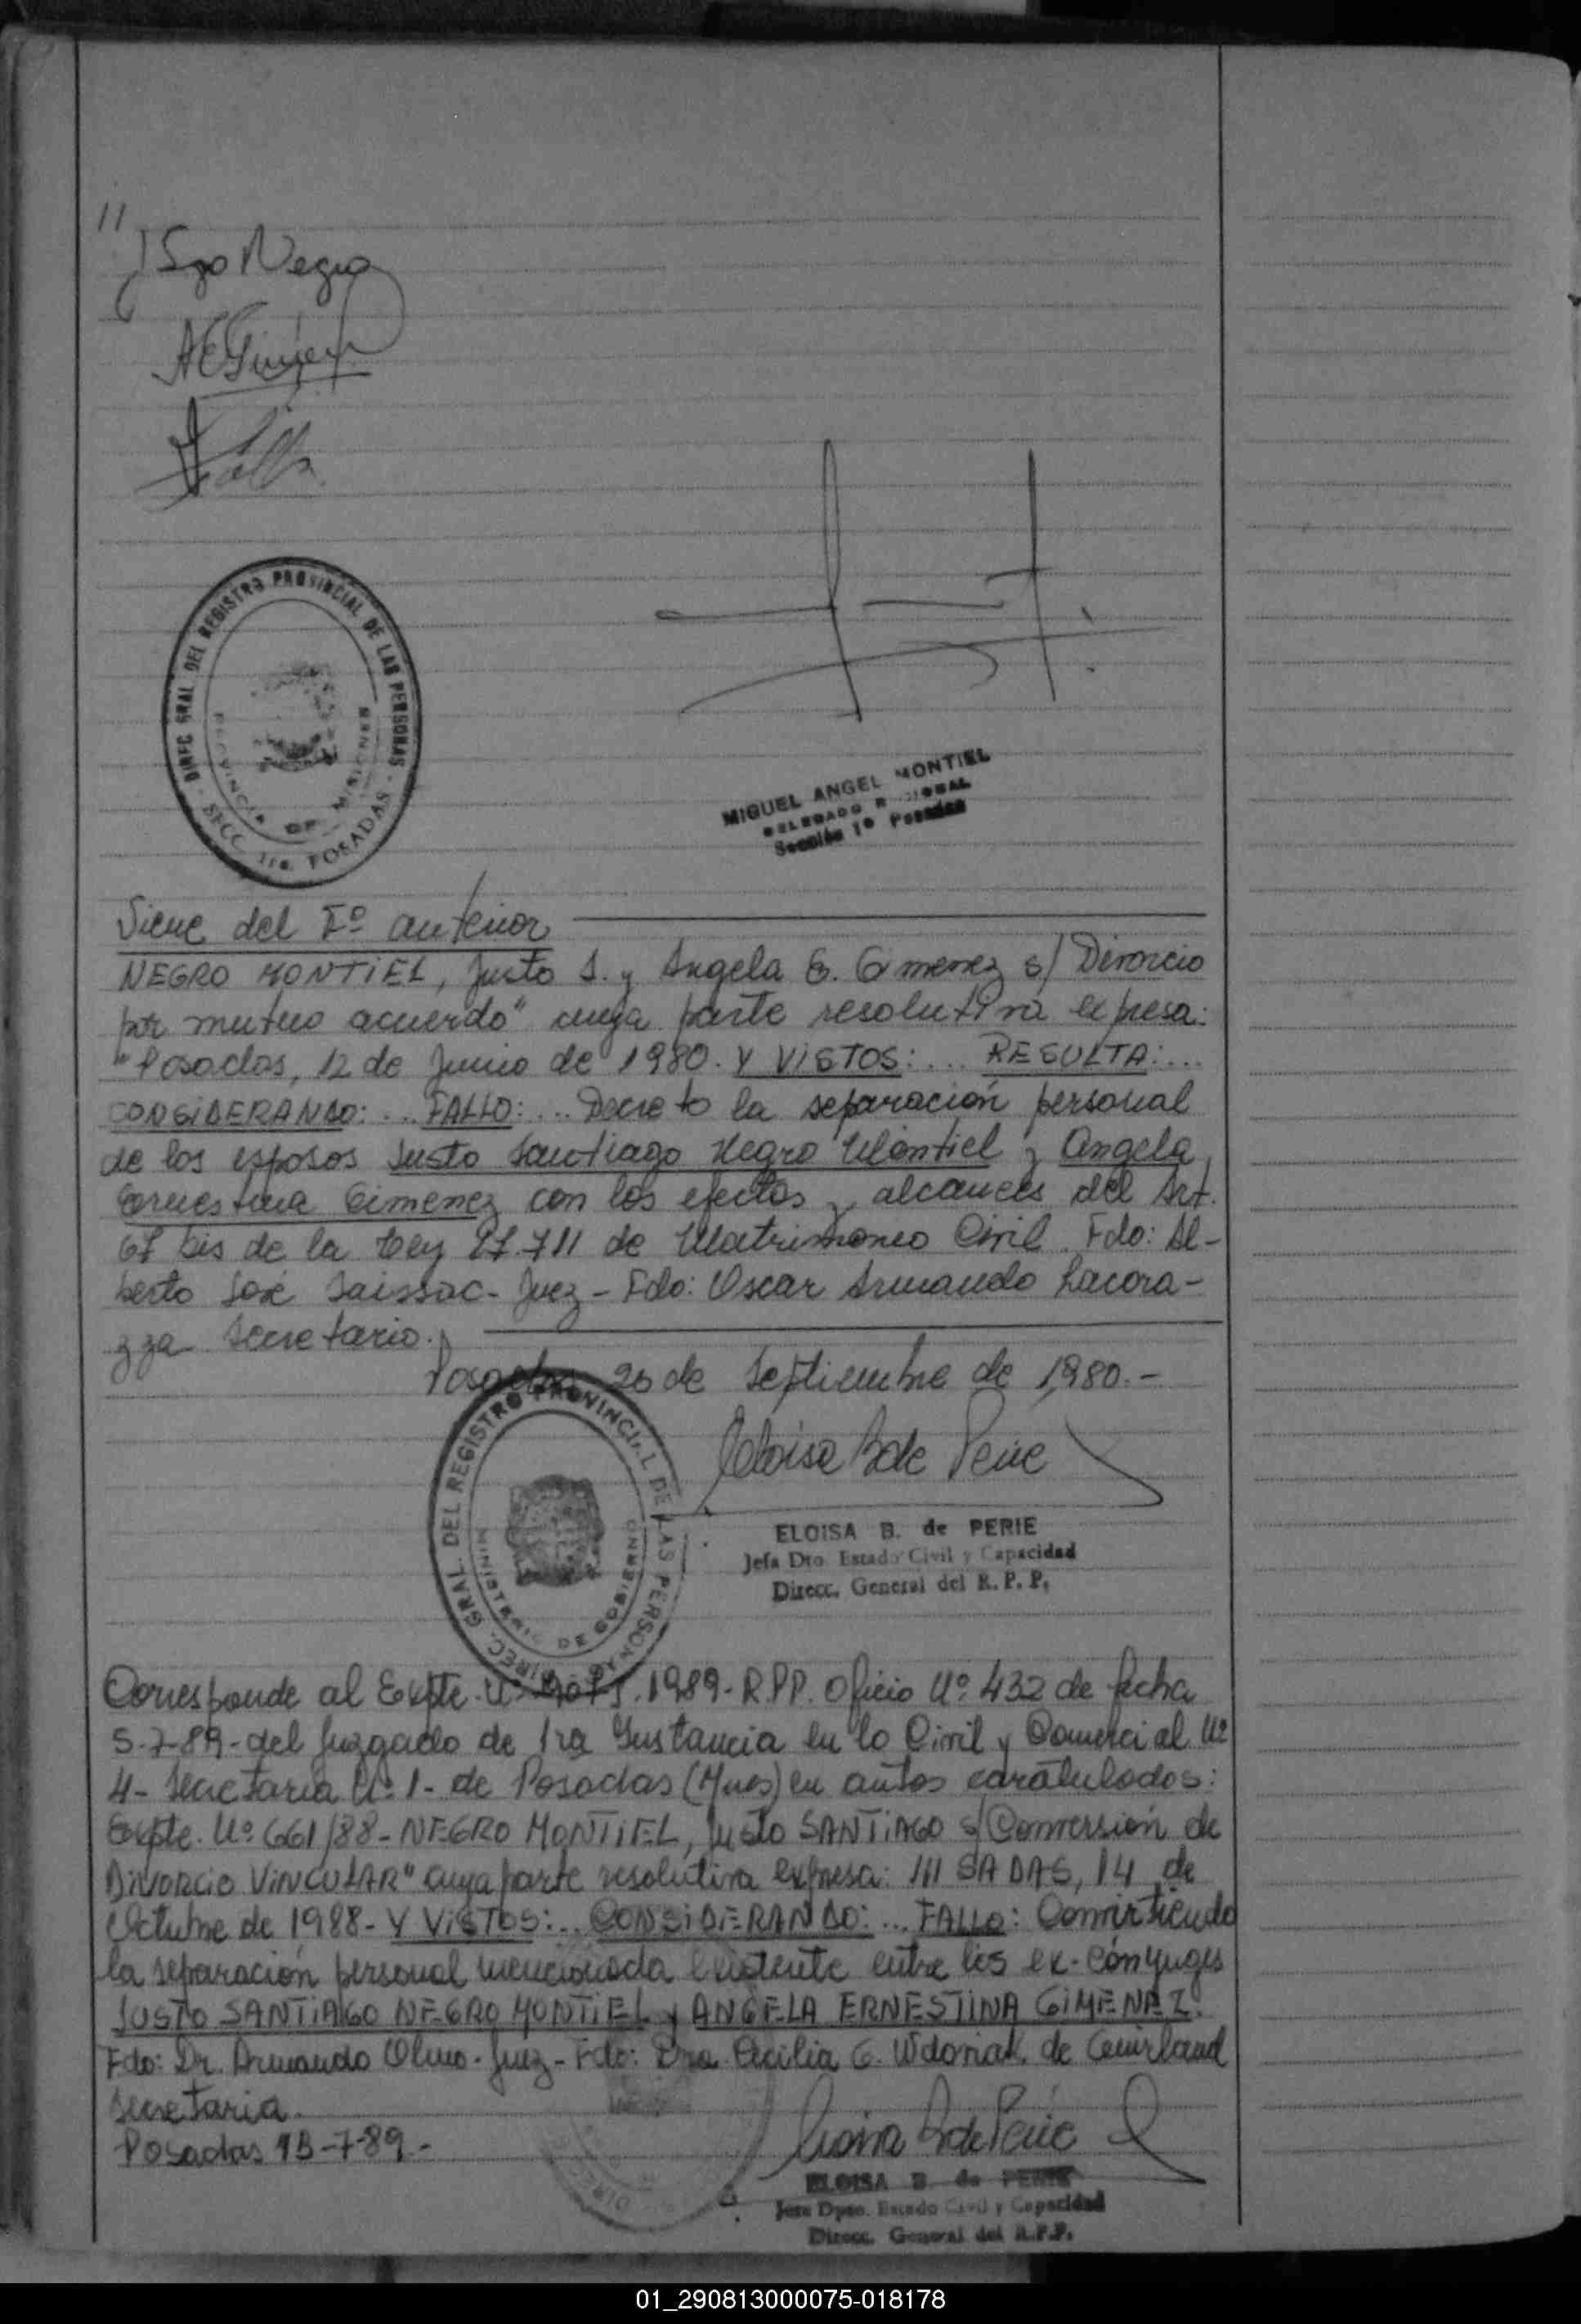 //
J Sgo Negro
AEGimenez
DIREC GRAL DEL REGISTRO PROVINCIAL DE LAS PERSONAS - SECC 1ra. POSADAS
PROVINCIA DE MISIONES
MIGUEL ANGEL MONTIEL
DELEGADO
Sección 1º Posadas
Viene del Fº anterior
NEGRO MONTIEL, Justo S. y Angela E. Gimenez s/ Divorcio
por mutuo acuerdo" cuya parte resolutiva expresa:
"Posadas, 12 de Junio de 1980. Y VISTOS: ... RESULTA: ...
CONSIDERANDO: ... FALLO: ... Decreto la separación personal
de los esposos Justo Santiago Negro Montiel y Angela
Ernestina Gimenez con los efectos y alcances del Art.
67 bis de la Ley 17.711 de Matrimonio Civil. Fdo: Al-
berto José Saissac - Juez - Fdo: Oscar Armando Lacora-
zza Secretario.
Posadas 26 de Septiembre de 1,980.-
Eloisa B de Perie
DIREC. GRAL. DEL REGISTRO PROVINCIAL DE LAS PERSONAS
MINISTERIO DE GOBIERNO
ELOISA B. de PERIE
Jefa Dto. Estado Civil y Capacidad
Direcc. General del R. P. P.
Corresponde al Expte. Nº 1989 - R.P.P. Oficio Nº 432 de fecha
5-7-89 - del Juzgado de 1ra Instancia en lo Civil y Comercial Nº
4 - Secretaria Nº 1 - de Posadas (Mnes) en autos caratulados:
Expte. Nº 661/88 - NEGRO MONTIEL, Justo SANTIAGO s/ Conversión de
DIVORCIO VINCULAR" cuya parte resolutiva expresa: ///SADAS, 14 de
Octubre de 1988 - Y VISTOS: ... CONSIDERANDO: ... FALLO: Convirtiendo
la separación personal mencionada existente entre los ex-cónyuges
JUSTO SANTIAGO NEGRO MONTIEL y ANGELA ERNESTINA GIMENEZ.
Fdo: Dr. Armando Olmo - Juez - Fdo: Dra Cecilia G. de
Secretaria.
Posadas 13-7-89.-
B de Perie
ELOISA B. de PERIE
Jefa Dpto. Estado Civil y Capacidad
Direcc. General del R.P.P.
01_290813000075-018178